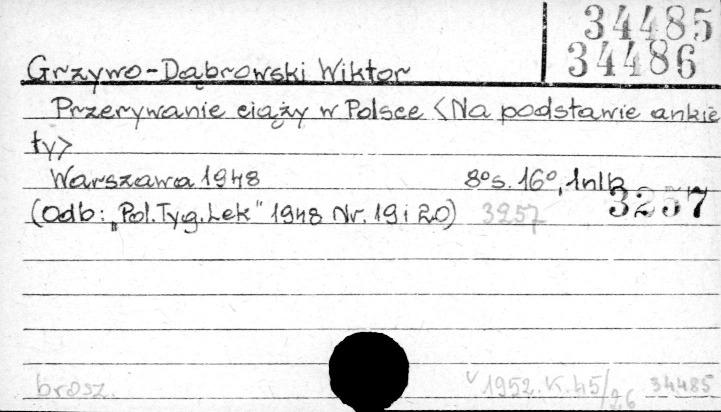 34485
34486
Grzywo-Dąbrowski Wiktor
Przerywanie ciąży w Polsce <Na podstawie ankie
ty>
Warszawa 1948 8° s. 16°, 1nlb
(Odb: „Pol. Tyg. Lek" 1948 Nr. 19 i 20) 3257 3257
brosz. V 1952. K. 45/26 34485